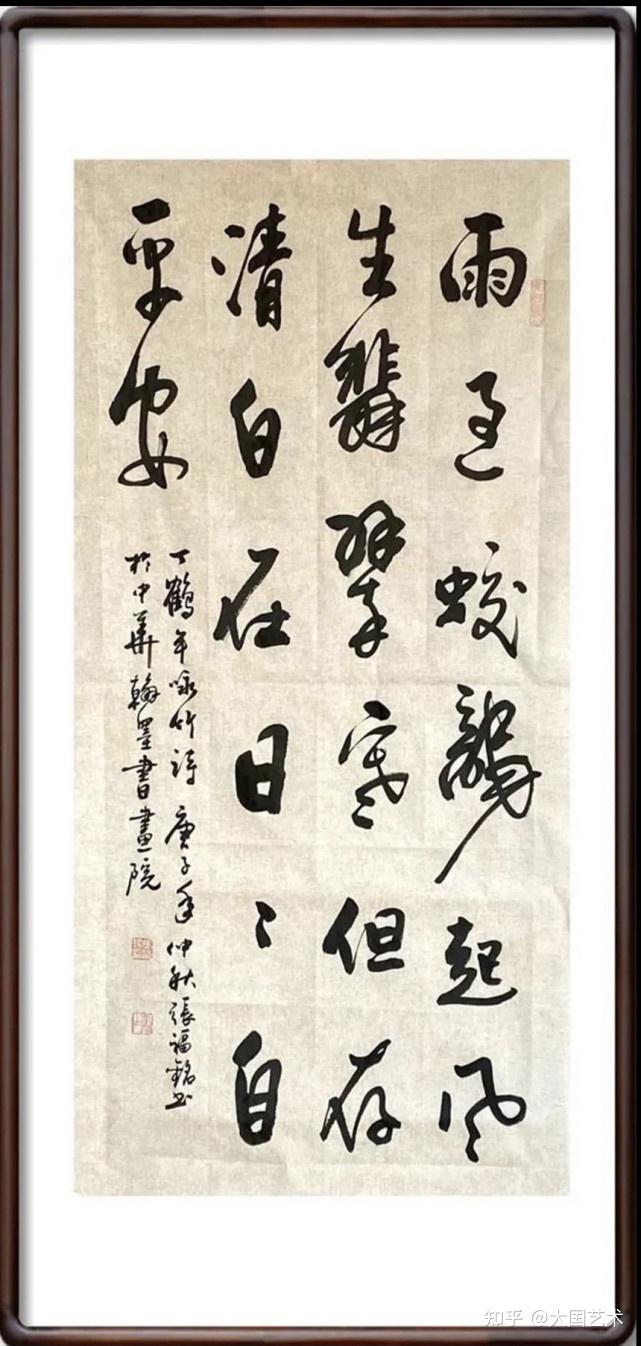 雨過蛟龍起風
生翡翠寒但存
清白在日々自
平安
丁鶴年咏竹詩 庚子年仲秋張福銘书
於中華翰墨書畫院
知乎 @大国艺术